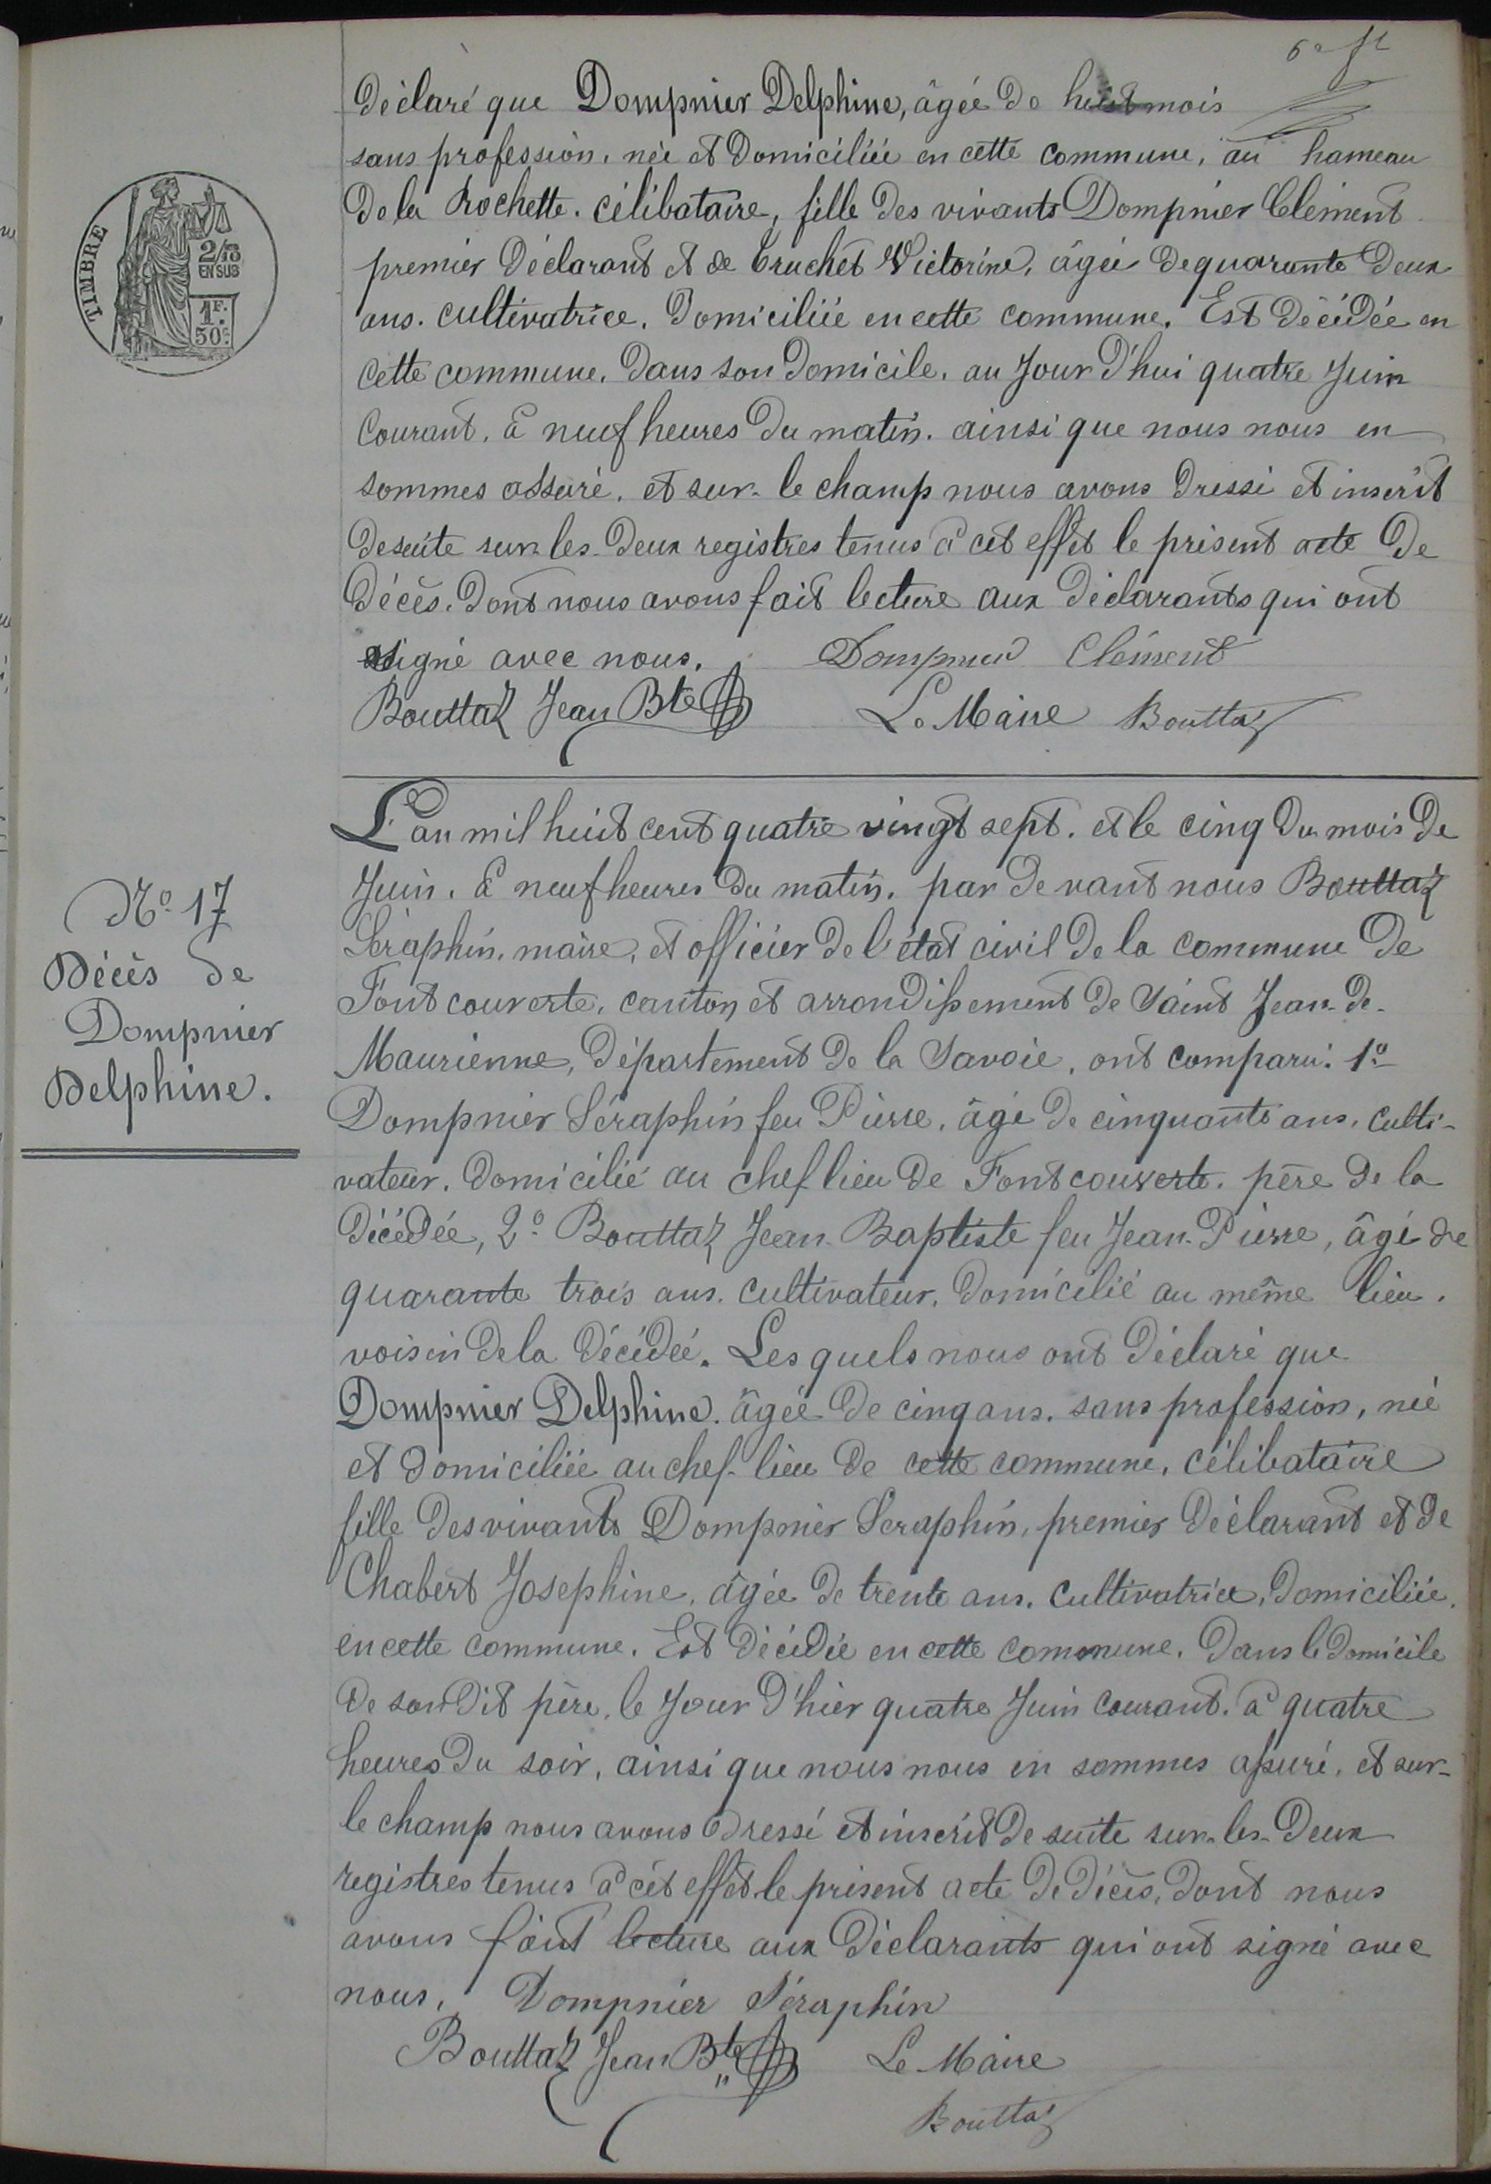 6e ft
déclaré que Dompnier Delphine, âgée de huit mois
sans profession, née et domiciliée en cette commune, au hameau
de la Rochette, célibataire, fille des vivants Dompnier Clément
premier déclarant et de Truchet Victorine, âgée de quarante deux
ans, cultivatrice, domiciliée en cette commune. Est décédée en
cette commune, dans son domicile, au jour d'hui quatre juin
courant, à neuf heures du matin, ainsi que nous nous en
sommes assuré, et sur-le champ nous avons dressé et inscrit
de suite sur les deux registres tenus à cet effet le présent acte de
décès, dont nous avons fait lecture aux déclarants qui ont
signé avec nous. Dompnier Clément
Bouttaz Jean Bte Le Maire Bouttaz
TIMBRE
2/10
EN SUS
1F.
50c.
L'an mil huit cent quatre vingt sept, et le cinq du mois de
Juin, à neuf heures du matin, par devant nous Bouttaz
Séraphin, maire, et officier de l'état civil de la commune de
Fontcouverte, canton et arrondissement de Saint Jean-de-
Maurienne, département de la Savoie, ont comparu: 1o
Dompnier Séraphin feu Pierre, âgé de cinquante ans, culti-
vateur, domicilié au chef lieu de Fontcouverte, père de la
décédée, 2o Bouttaz Jean-Baptiste feu Jean-Pierre, âgé de
quarante trois ans, cultivateur, domicilié au même lieu,
voisin de la décédée. Les quels nous ont déclaré que
Dompnier Delphine, âgée de cinq ans, sans profession, née
et domiciliée au chef-lieu de cette commune, célibataire
fille des vivants Dompnier Séraphin, premier déclarant et de
Chabert Josephine, âgée de trente ans, cultivatrice, domiciliée
en cette commune. Est décédée en cette commune, dans le domicile
de son dit père, le jour d'hier quatre Juin courant, à quatre
heures du soir, ainsi que nous nous en sommes assuré, et sur-
le champ nous avons dressé et inscrit de suite sur-les-deux
registres tenus à cet effet le présent acte de décès, dont nous
avons fait lecture aux déclarants qui ont signé avec
nous. Dompnier Séraphin
Bouttaz Jean Bte Le Maire
Bouttaz
No 17
Décès de
Dompnier
Delphine.